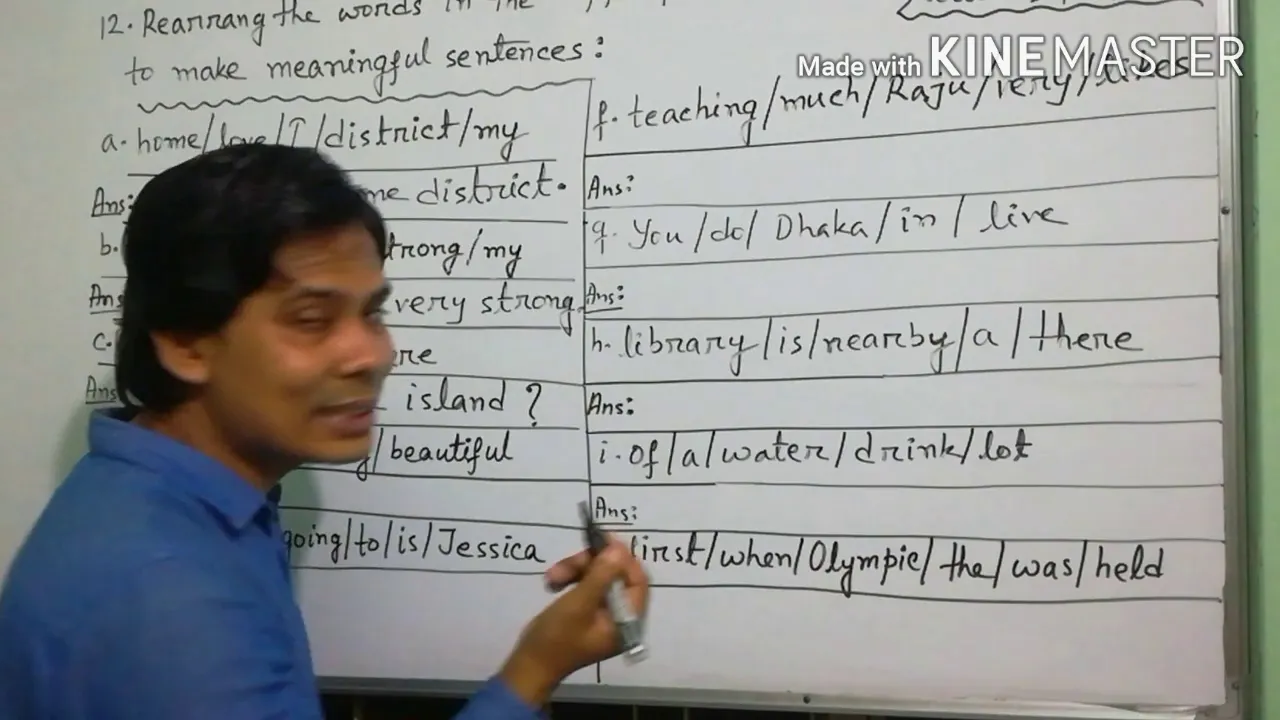 12. Rearrang the words in the
to make meaningful sentences:
a. home/love/I/district/my
Ans: me district.
b. trong/my
Ans very strong.
c. ere
Ans island?
/beautiful
going/to/is/Jessica
f. teaching/much/Raju/very/likes
Ans:
g. You/do/ Dhaka/in/ live
Ans:
h. library/is/nearby/a/there
Ans:
i. of/a/water/drink/lot
Ans:
first/when/Olympic/the/was/held
Made with KINEMASTER